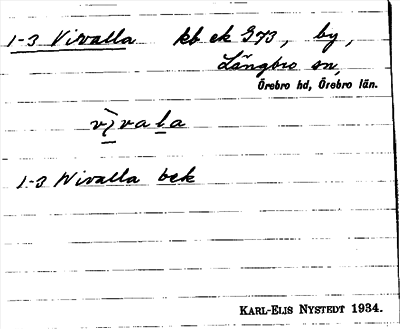 1-3 Vivalla kb ek 973, by,
Längbro sn,
Örebro hd, Örebro län.
v)vala
1-3 Wivalla bek
KARL-ELIS NYSTEDT 1934.